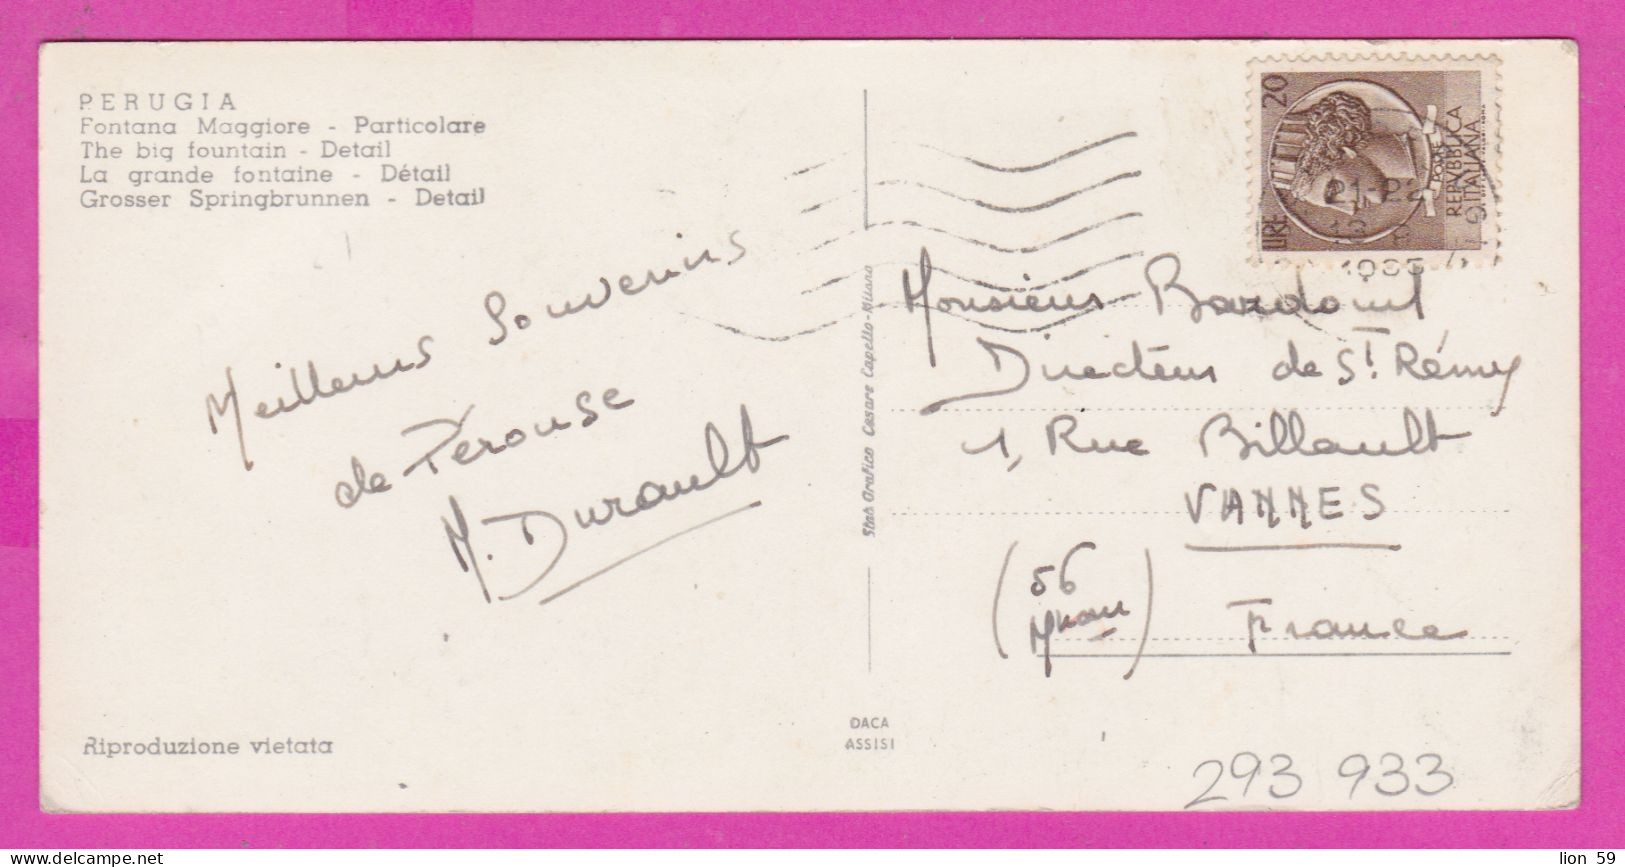 PERUGIA
Fontana Maggiore - Particolare
The big fountain - Detail
La grande fontaine - Détail
Grosser Springbrunnen - Detail
Meilleurs Souvenirs
de Pérouse
M. Durault
Riproduzione vietata
Stab Grafico Cesare Capello - Milano
DACA
ASSISI
LIRE 20
POSTE
REPVBBLICA
ITALIANA
21-22
Monsieur
Directeur de St. Rémy
1, Rue Billault
VANNES
(56
)
France
293 933
lion 59